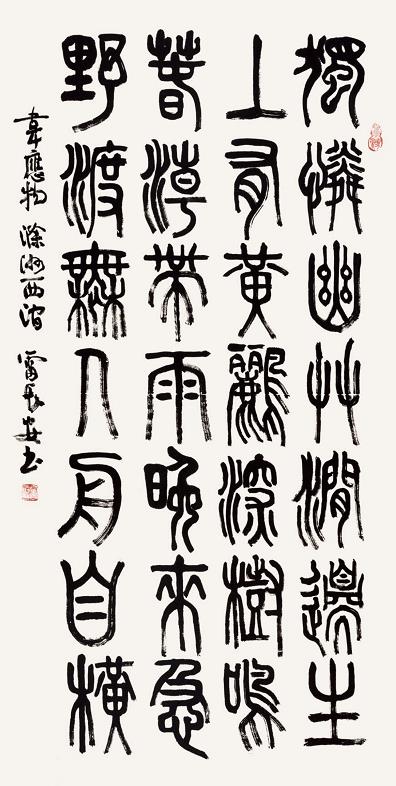 獨憐幽艸澗邊生
上有黃鸝深樹鳴
春潮帶雨晚來急
野渡無人舟自橫
韋應物 滁州西澗 雷長安书